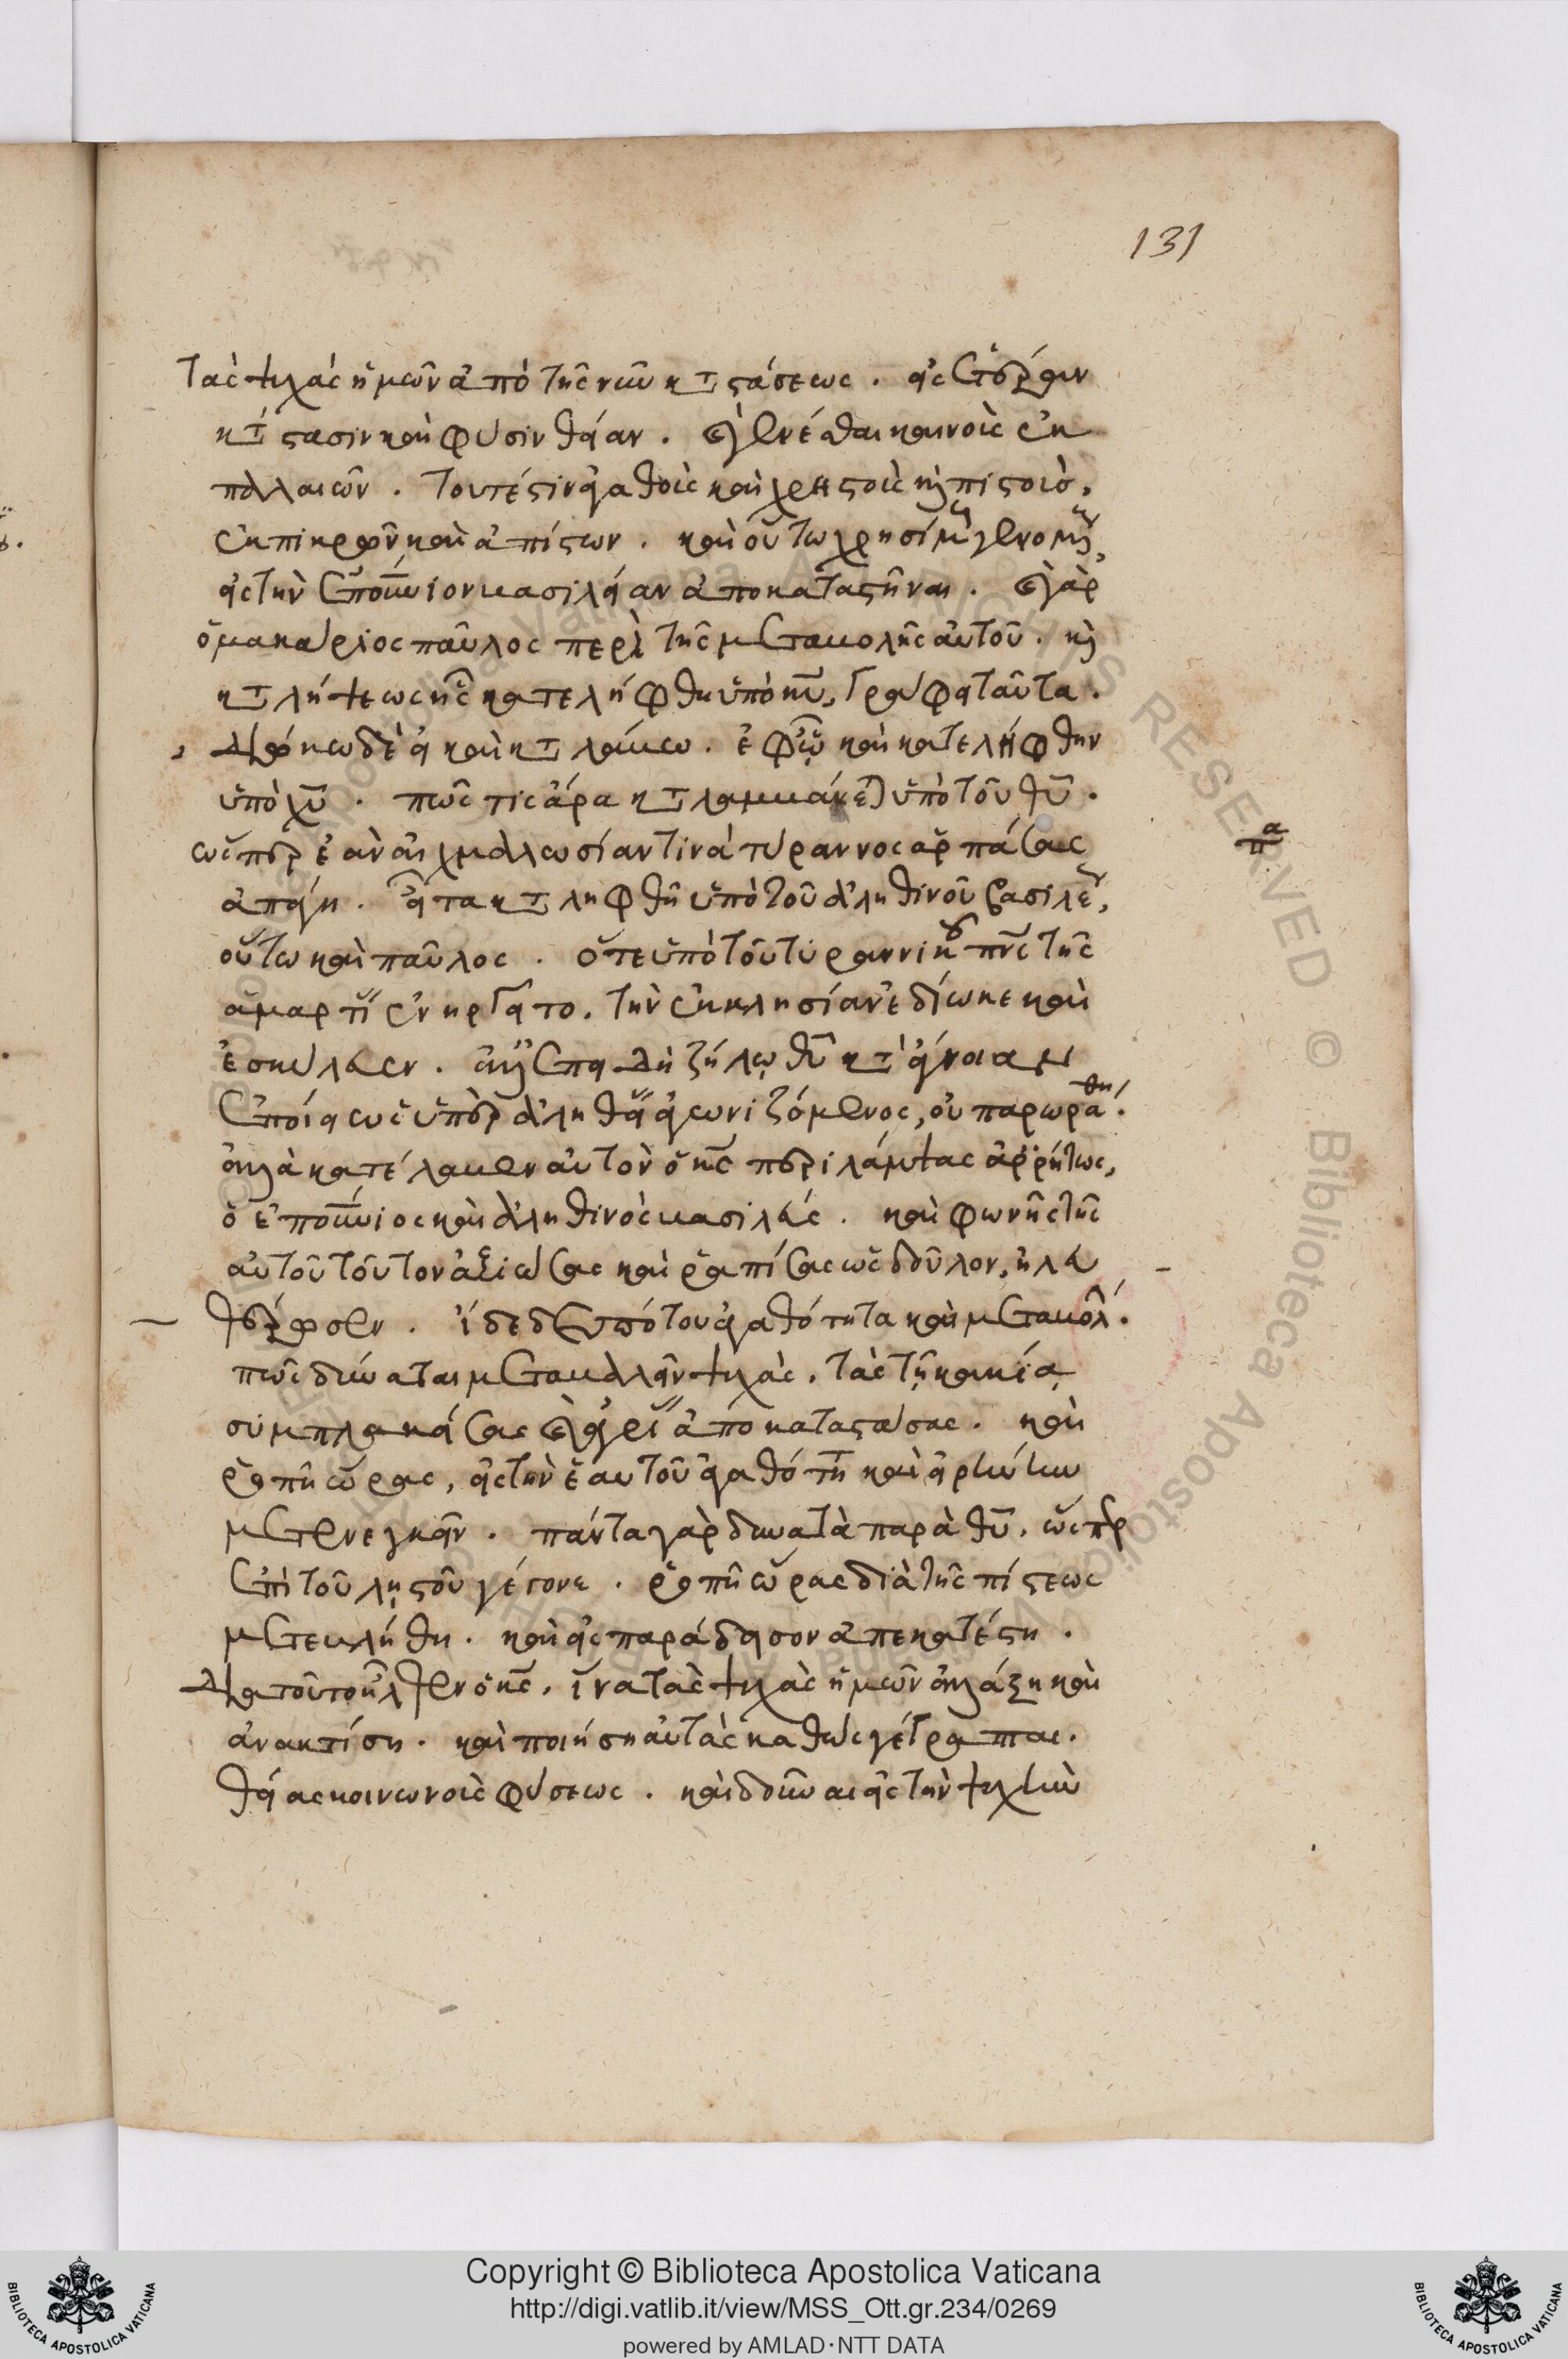 131
τὰς ψυχὰς ἡμῶν ἀπὸ τῆς νῦν καταστάσεως . εἰς ἑτέραν
κατάστασιν καὶ φύσιν θείαν . καὶ γενέσθαι καινοῖς ἐκ
παλαιῶν . τουτέστιν ἀγαθοῖς καὶ χρηστοῖς καὶ πιστοῖς,
ἐκ πικρῶν καὶ ἀπίστων . καὶ οὕτω χρησίμους γενομένους,
εἰς τὴν ἐπουράνιον βασιλείαν ἀποκαταστῆναι . καὶ γὰρ
ὁ μακάριος παῦλος περὶ τῆς μεταβολῆς αὐτοῦ . καὶ
καταλήψεως ἧς κατελήφθη ὑπὸ κυ, γράφει ταῦτα .
διώκω δὲ εἰ καὶ καταλάβω . ἐφ ᾧ καὶ κατελήφθην
ὑπὸ χυ . πῶς τις ἄρα καταλαμβάνεται ὑπὸ τοῦ θυ .
ὥσπερ ἐὰν αἰχμαλωσίαν τινὰ τύραννος ἁρπάσας
ἀπάγη . εἶτα καταληφθῆ ὑπὸ τοῦ ἀληθινοῦ βασιλέως,
οὕτω καὶ παῦλος . ὅτε ὑπὸ τοῦ τυραννικοῦ πνς τῆς
ἁμαρτίας ἐνηργεῖτο . τὴν ἐκκλησίαν ἐδίωκε καὶ
ἐσκύλευεν . ἀλλ ἐπειδὴ ζήλῳ θυ κατ ἄγνοιαν
ἐποίει ὡς ὑπὲρ ἀληθείας ἀγωνιζόμενος, οὐ παρωράθη .
ἀλλὰ κατέλαβεν αὐτὸν ὁ κς περιλάμψας ἀρρήτως,
ὁ ἐπουράνιος καὶ ἀληθινὸς βασιλεύς . καὶ φωνῆς τῆς
αὐτοῦ τοῦτον ἀξιώσας καὶ ῥαπίσας ὡς δοῦλον, ἠλευ
θέρωσεν . ἴδε δεσπότου ἀγαθότητα καὶ μεταβολήν .
πῶς δύναται μεταβαλεῖν ψυχὰς . τὰς τῇ κακίᾳ
συμπλακείσας καὶ ἀγρίας ἀποκαταστάσας . καὶ
ῥοπῇ ὥρας, εἰς τὴν ἑαυτοῦ ἀγαθότητα καὶ εἰρήνην
μετενεγκεῖν . πάντα γὰρ δυνατὰ παρὰ θυ . ὥσπερ
ἐπὶ τοῦ λῃστοῦ γέγονε . ῥοπῇ ὥρας διὰ τῆς πίστεως
μετεβλήθη . καὶ εἰς παράδεισον ἀπεκατέστη .
διὰ τοῦτο ἦλθεν ὁ κς . ἵνα τὰς ψυχὰς ἡμῶν ἀλλάξη καὶ
ἀνακτίση . καὶ ποιήση αὐτὰς καθὼς γέγραπται .
θείας κοινωνοὺς φύσεως . καὶ δοῦναι εἰς τὴν ψυχὴν
Copyright © Biblioteca Apostolica Vaticana
http://digi.vatlib.it/view/MSS_Ott.gr.234/0269
powered by AMLAD·NTT DATA
BIBLIOTECA APOSTOLICA VATICANA
BIBLIOTECA APOSTOLICA VATICANA